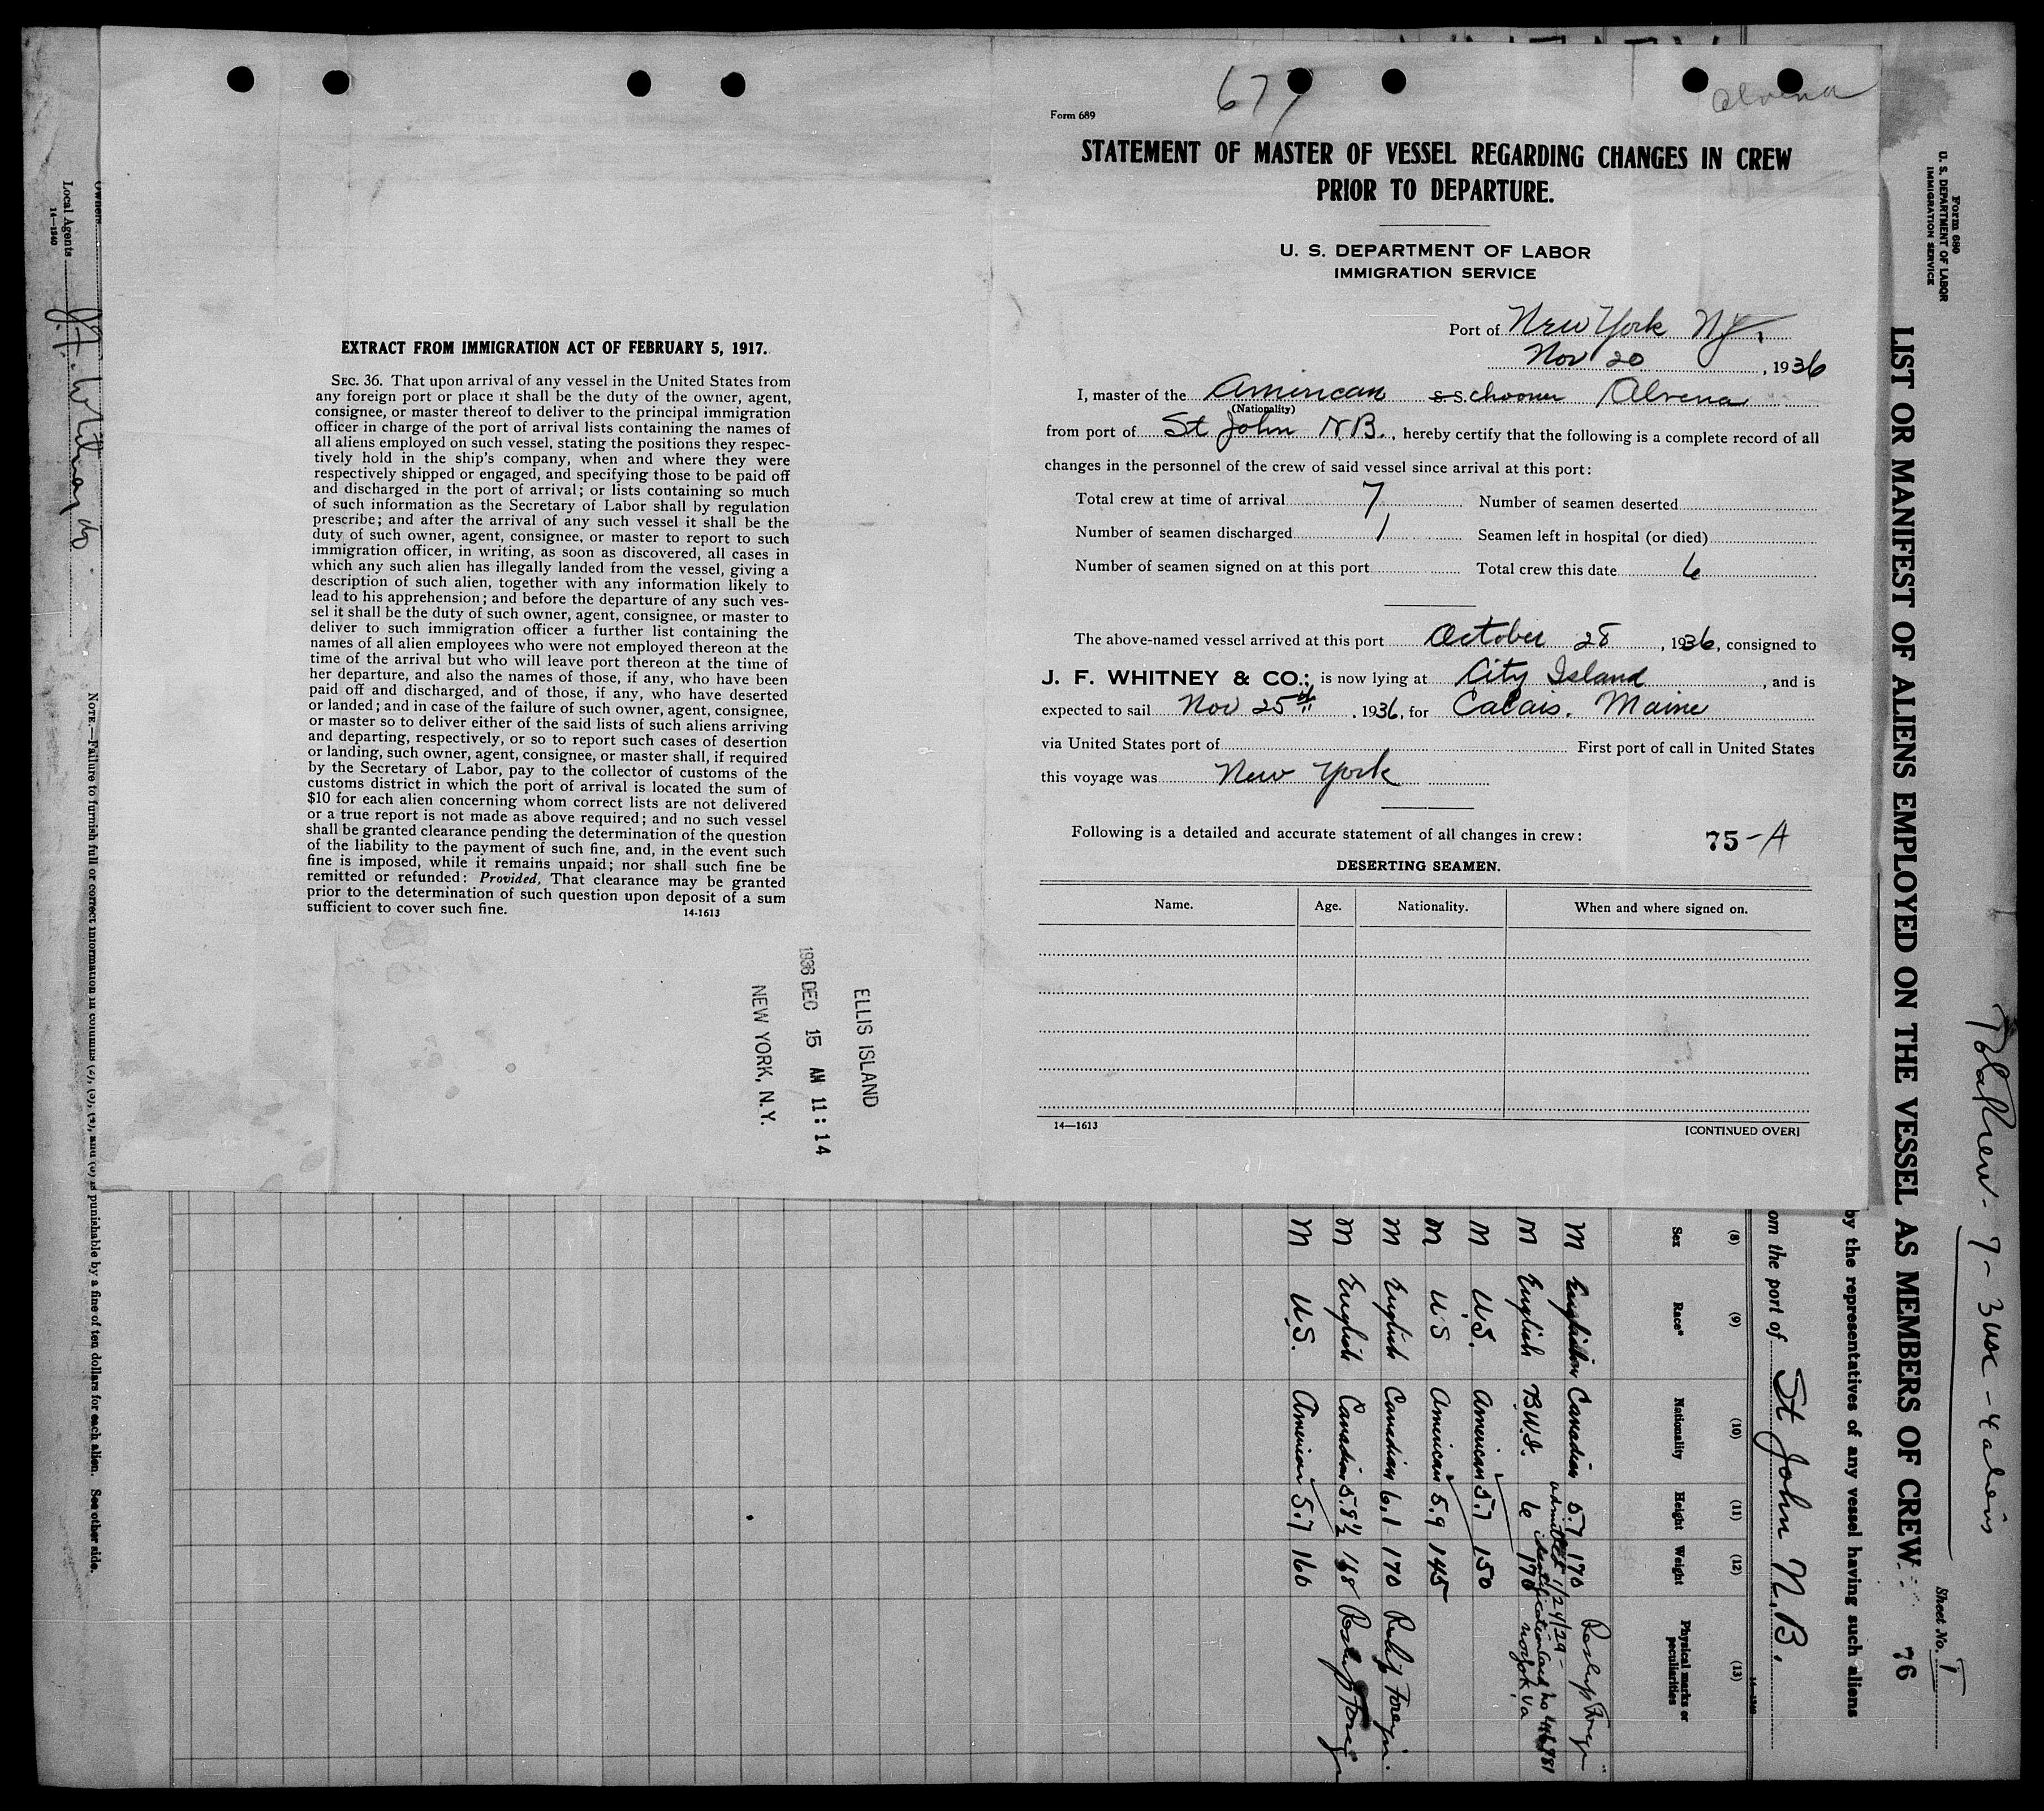 677
Alvena
Form 689
STATEMENT OF MASTER OF VESSEL REGARDING CHANGES IN CREW
PRIOR TO DEPARTURE.
U. S. DEPARTMENT OF LABOR
IMMIGRATION SERVICE
Port of New York N.Y.
Nov 20, 1936
I, master of the American Schooner Alvena
(Nationality)
from port of St John N.B., hereby certify that the following is a complete record of all
changes in the personnel of the crew of said vessel since arrival at this port:
Total crew at time of arrival 7 Number of seamen deserted
Number of seamen discharged 1 Seamen left in hospital (or died)
Number of seamen signed on at this port Total crew this date 6
The above-named vessel arrived at this port October 28, 1936, consigned to
J. F. WHITNEY & CO.; is now lying at City Island, and is
expected to sail Nov 25th, 1936, for Calais. Maine
via United States port of First port of call in United States
this voyage was New York
Following is a detailed and accurate statement of all changes in crew:
75-A
DESERTING SEAMEN.
Name. Age. Nationality. When and where signed on.
14—1613
[CONTINUED OVER]
EXTRACT FROM IMMIGRATION ACT OF FEBRUARY 5, 1917.
SEC. 36. That upon arrival of any vessel in the United States from
any foreign port or place it shall be the duty of the owner, agent,
consignee, or master thereof to deliver to the principal immigration
officer in charge of the port of arrival lists containing the names of
all aliens employed on such vessel, stating the positions they respec-
tively hold in the ship's company, when and where they were
respectively shipped or engaged, and specifying those to be paid off
and discharged in the port of arrival; or lists containing so much
of such information as the Secretary of Labor shall by regulation
prescribe; and after the arrival of any such vessel it shall be the
duty of such owner, agent, consignee, or master to report to such
immigration officer, in writing, as soon as discovered, all cases in
which any such alien has illegally landed from the vessel, giving a
description of such alien, together with any information likely to
lead to his apprehension; and before the departure of any such ves-
sel it shall be the duty of such owner, agent, consignee, or master to
deliver to such immigration officer a further list containing the
names of all alien employees who were not employed thereon at the
time of the arrival but who will leave port thereon at the time of
her departure, and also the names of those, if any, who have been
paid off and discharged, and of those, if any, who have deserted
or landed; and in case of the failure of such owner, agent, consignee,
or master so to deliver either of the said lists of such aliens arriving
and departing, respectively, or so to report such cases of desertion
or landing, such owner, agent, consignee, or master shall, if required
by the Secretary of Labor, pay to the collector of customs of the
customs district in which the port of arrival is located the sum of
$10 for each alien concerning whom correct lists are not delivered
or a true report is not made as above required; and no such vessel
shall be granted clearance pending the determination of the question
of the liability to the payment of such fine, and, in the event such
fine is imposed, while it remains unpaid; nor shall such fine be
remitted or refunded: Provided, That clearance may be granted
prior to the determination of such question upon deposit of a sum
sufficient to cover such fine.
14-1613
ELLIS ISLAND
1936 DEC 15 AM 11:14
NEW YORK, N.Y.
Form 680
U. S. DEPARTMENT OF LABOR
IMMIGRATION SERVICE
Total Crew - 7 - 3 usc - 4 aliens
Sheet No. 1
LIST OR MANIFEST OF ALIENS EMPLOYED ON THE VESSEL AS MEMBERS OF CREW
76
by the representatives of any vessel having such aliens
om the port of St John N.B.
(8) (9) (10) (11) (12) (13)
Sex Race* Nationality Height Weight Physical marks or peculiarities
M Canadian 5.7 170
admitted 1/24/29 -
identification Card no
Norfolk Va
M English B.W.I. 6 170
M U.S. American 5.7 150
M U.S American 5.9 145
M English Canadian 6.1 170
M English Canadian 5.8½ 168
M U.S. American 5.7 160
NOTE.—Failure to furnish full or correct information in columns (2), (3), (4), and (6) is punishable by a fine of ten dollars for each alien. See other side.
Owners
Local Agents J.F. Whitney & Co
14—1340